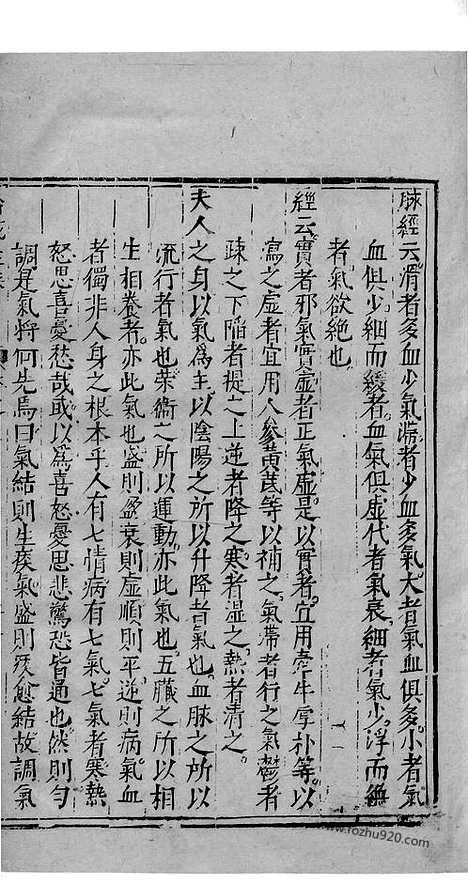 脉經云滑者多血少氣濇者少血多氣大者氣血俱多小者氣
血俱少細而緩者血氣俱虛代者氣衰細者氣少浮而絶
者氣欲絶也
經云實者邪氣實虛者正氣虛是以實者宜用牽牛厚朴等以
瀉之虛者宜用人參黄芪等以補之氣滯者行之氣鬱者
疎之下陷者提之上逆者降之寒者温之熱者清之
夫人之身以氣爲主以陰陽之所以升降者氣也血脉之所以
流行者氣也榮衛之所以運動亦此氣也五臟之所以相
生相養者亦此氣也盛則盈衰則虛順則平逆則病氣血
者獨非人身之根本乎人有七情病有七氣七氣者寒熱
怒思喜憂愁哉或以爲喜怒憂思悲驚恐皆通也然則匀
調是氣將何先焉曰氣結則生疾氣盛則疾愈結故調氣
www.fozhu920.com